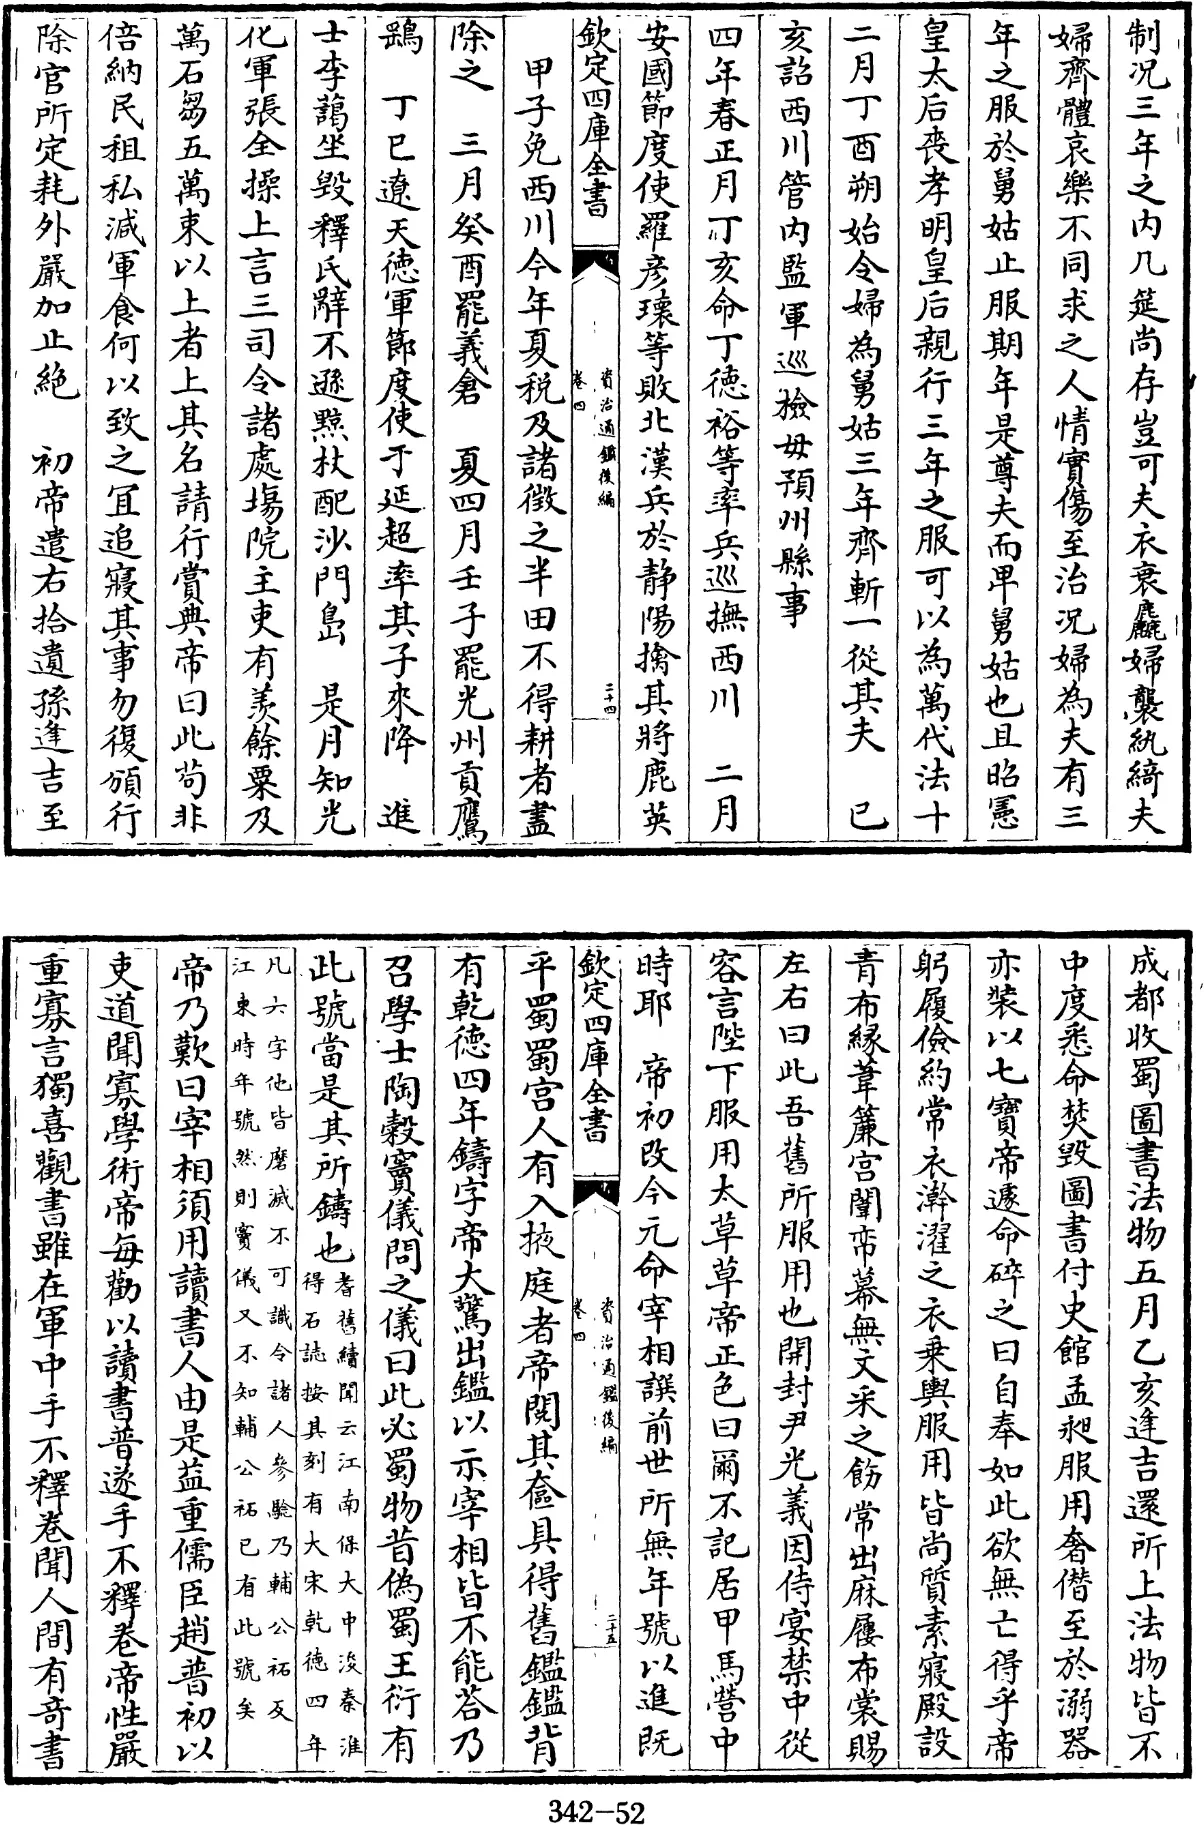 制况三年之内几筵尚存豈可夫衣衰麤婦襲紈綺夫
婦齊體哀樂不同求之人情實傷至治况婦為夫有三
年之服於舅姑止服期年是尊夫而卑舅姑也且昭憲
皇太后喪孝明皇后親行三年之服可以為萬代法十
二月丁酉朔始令婦為舅姑三年齊斬一從其夫　已
亥詔西川管内監軍巡檢毋預州縣事
四年春正月丁亥命丁德裕等率兵巡撫西川　二月
安國節度使羅彦瓌等敗北漢兵於静陽擒其將鹿英
欽定四庫全書
資治通鑑後編
卷四
二十四
甲子免西川今年夏税及諸徴之半田不得耕者盡
除之　三月癸酉罷義倉　夏四月壬子罷光州貢鷹
鷂　丁巳遼天德軍節度使于延超率其子來降　進
士李藹坐毁釋氏辭不遜黥杖配沙門島　是月知光
化軍張全操上言三司令諸處塲院主吏有羨餘粟及
萬石芻五萬束以上者上其名請行賞典帝曰此苟非
倍納民租私減軍食何以致之宜追寢其事勿復頒行
除官所定耗外嚴加止絶　初帝遣右拾遺孫逢吉至
成都收蜀圖書法物五月乙亥逢吉還所上法物皆不
中度悉命焚毁圖書付史館孟昶服用奢僣至於溺器
亦裝以七寶帝遽命碎之曰自奉如此欲無亡得乎帝
躬履儉約常衣澣濯之衣乗輿服用皆尚質素寢殿設
青布縁葦簾宫闈帟幕無文采之飾常出麻屨布裳賜
左右曰此吾舊所服用也開封尹光義因侍宴禁中從
容言陛下服用太草草帝正色曰爾不記居甲馬營中
時耶　帝初改今元命宰相譔前世所無年號以進既
欽定四庫全書
資治通鑑後編
卷四
二十五
平蜀蜀宫人有入掖庭者帝閲其奩具得舊鑑鑑背
有乾德四年鑄字帝大驚出鑑以示宰相皆不能答乃
召學士陶穀竇儀問之儀曰此必蜀物昔偽蜀王衍有
此號當是其所鑄也耆舊續聞云江南保大中浚秦淮
得石誌按其刻有大宋乾德四年
凡六字他皆磨滅不可識令諸人參驗乃輔公祏反
江東時年號然則竇儀又不知輔公祏已有此號矣
帝乃歎曰宰相須用讀書人由是益重儒臣趙普初以
吏道聞寡學術帝每勸以讀書普遂手不釋卷帝性嚴
重寡言獨喜觀書雖在軍中手不釋卷聞人間有奇書
342-52